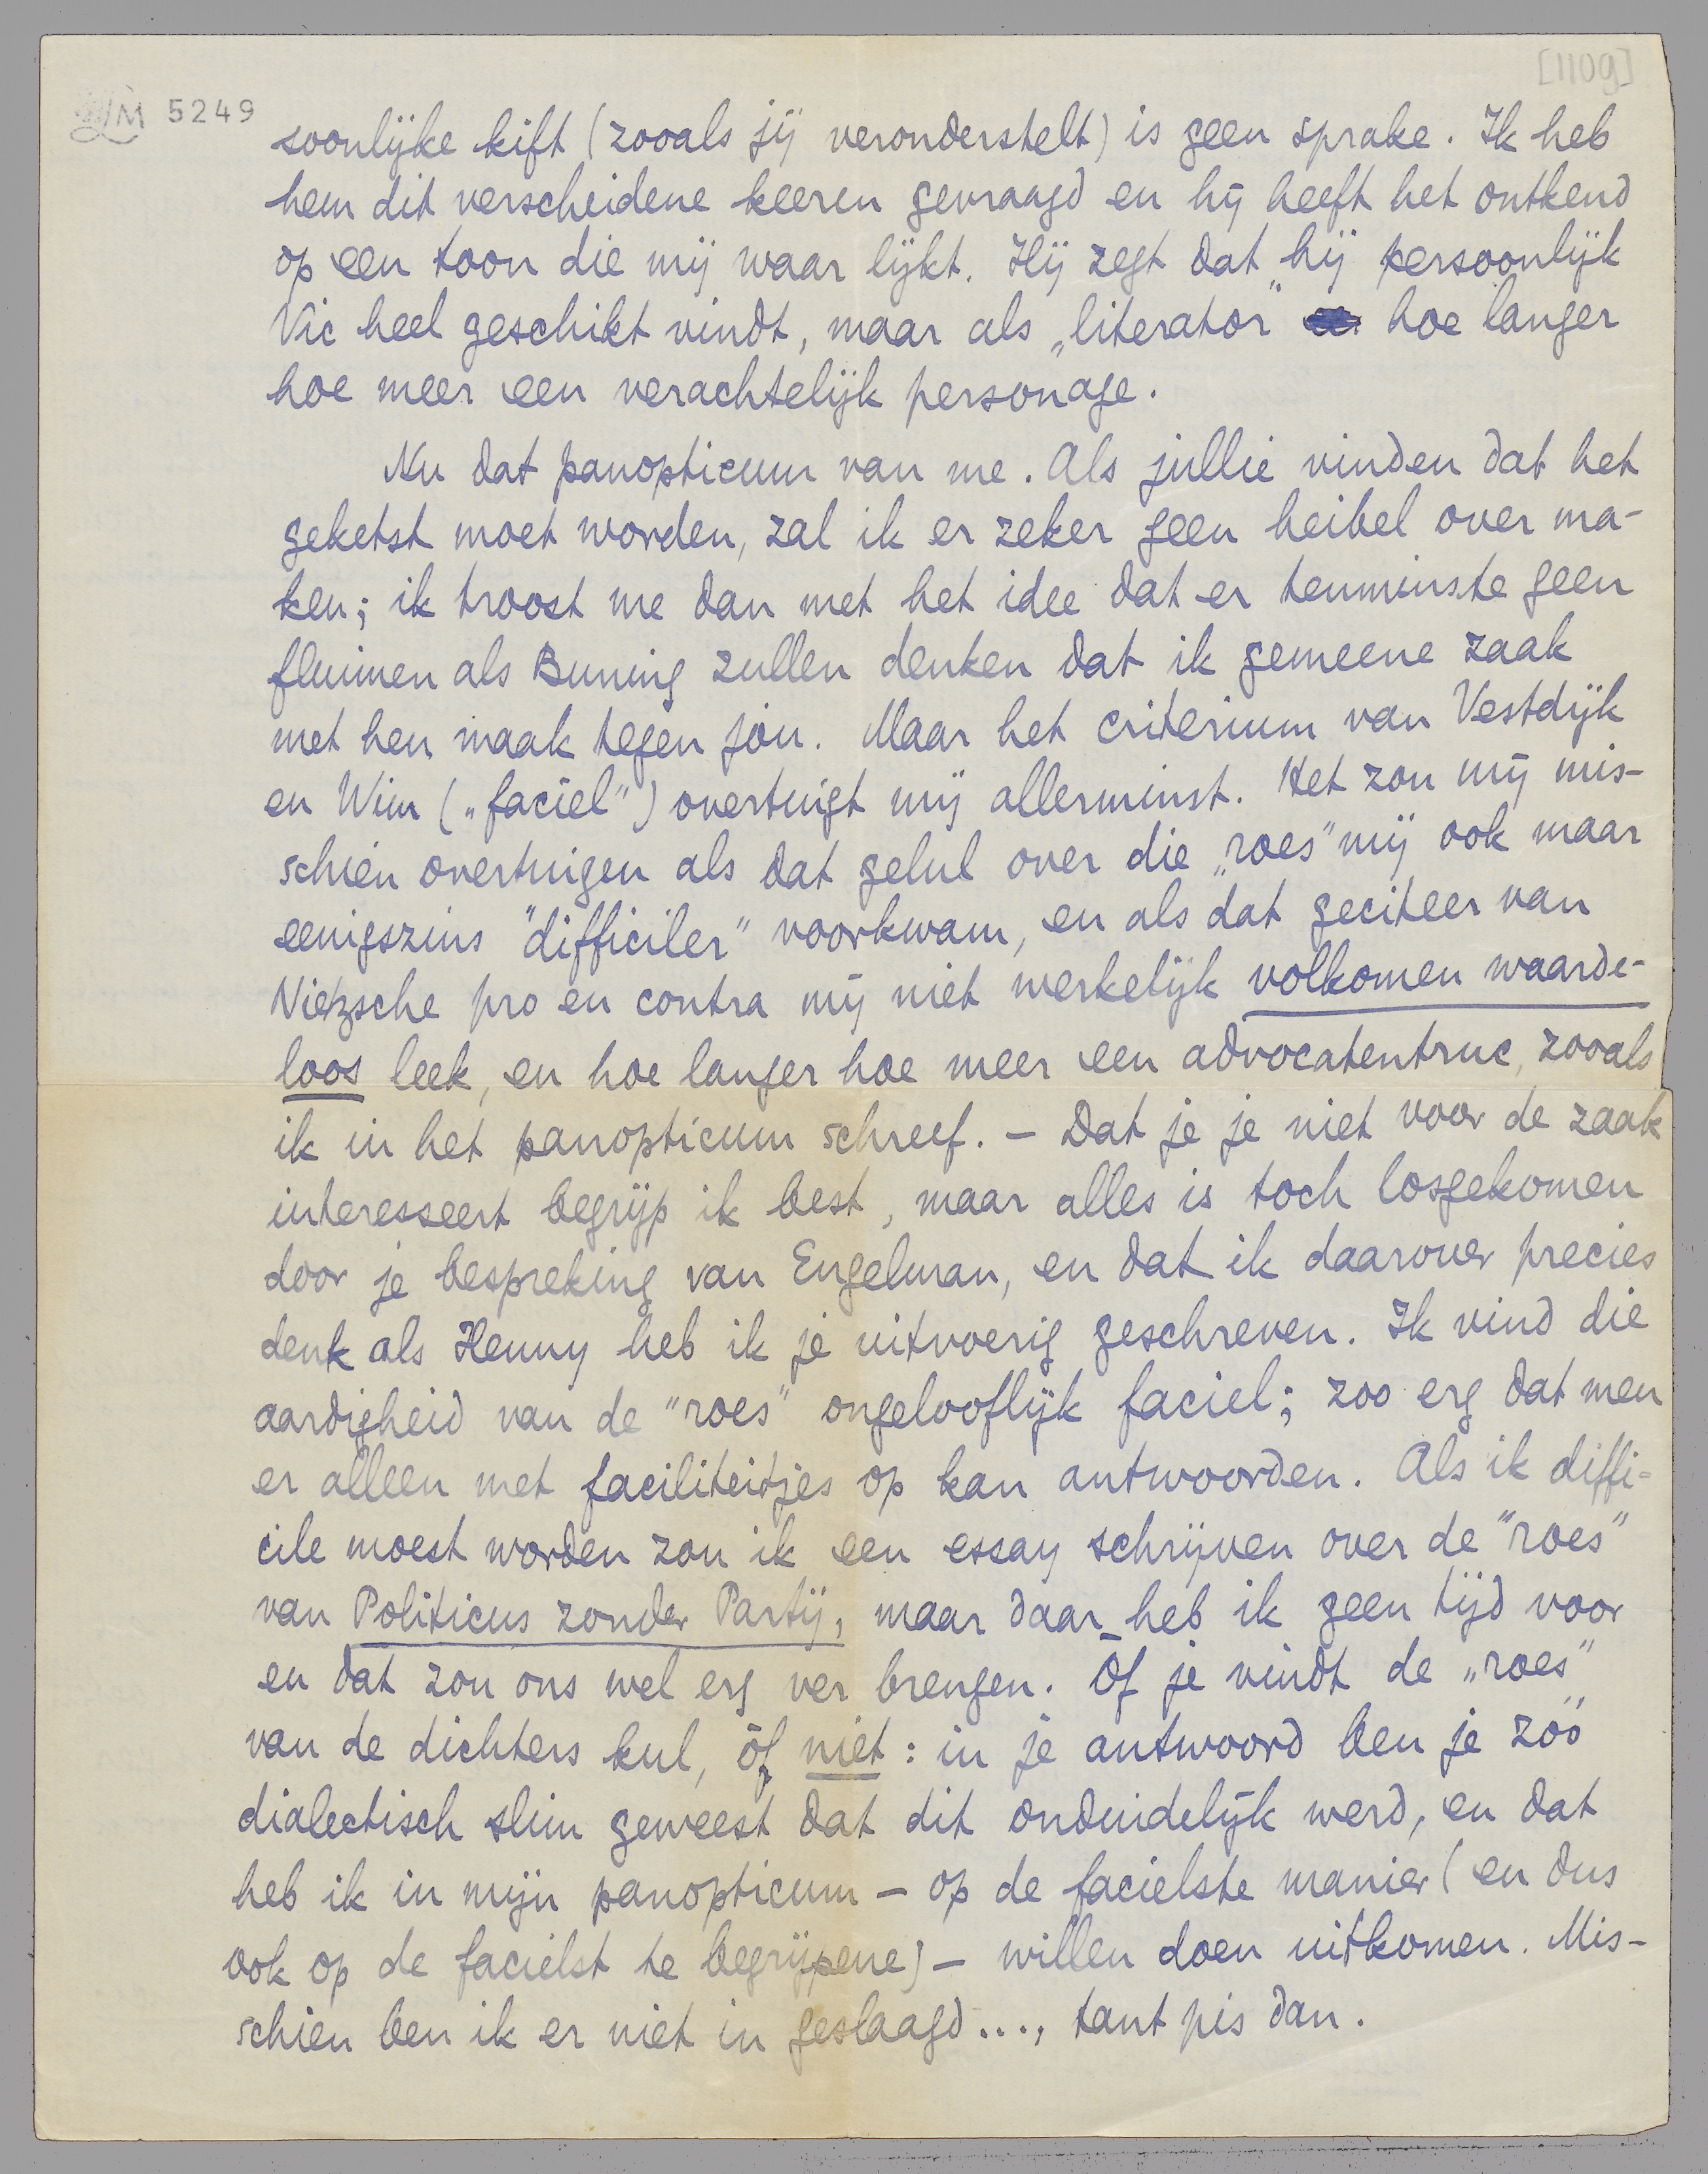 [1109]
LM 5249
soonlijke kift (zooals jij veronderstelt) is geen sprake. Ik heb
hem dit verscheidene keeren gevraagd en hij heeft het ontkend
op een toon die mij waar lijkt. Hij zegt dat hij persoonlijk
Vic heel geschikt vindt, maar als „literator" hoe langer
hoe meer een verachtelijk personage.
Nu dat panopticum van me. Als jullie vinden dat het
geketst moet worden, zal ik er zeker geen heibel over ma-
ken; ik troost me dan met het idee dat er tenminste geen
fluimen als Buning zullen denken dat ik gemeene zaak
met hen maak tegen jóu. Maar het criterium van Vestdijk
en Wim („faciel") overtuigt mij allerminst. Het zou mij mis-
schien overtuigen als dat gelul over die „roes" mij ook maar
eenigszins "difficiler" voorkwam, en als dat geciteer van
Nietzsche pro en contra mij niet werkelijk volkomen waarde-
loos leek, en hoe langer hoe meer een advocatentruc, zooals
ik in het panopticum schreef. – Dat je je niet voor de zaak
interesseert begrijp ik best, maar alles is toch losgekomen
door je bespreking van Engelman, en dat ik daarover precies
denk als Henny heb ik je uitvoerig geschreven. Ik vind die
aardigheid van de "roes" ongelooflijk faciel; zoo erg dat men
er alleen met faciliteitjes op kan antwoorden. Als ik diffi-
cile moest worden zou ik een essay schrijven over de "roes"
van Politicus zonder Partij, maar daar heb ik geen tijd voor
en dat zou ons wel erg ver brengen. Óf je vindt de „roes"
van de dichters kul, óf niet: in je antwoord ben je zóó
dialectisch slim geweest dat dit onduidelijk werd, en dat
heb ik in mijn panopticum – op de facielste manier (en dus
ook op de facielst te begrijpene) – willen doen uitkomen. Mis-
schien ben ik er niet in geslaagd..., tant pis dan.